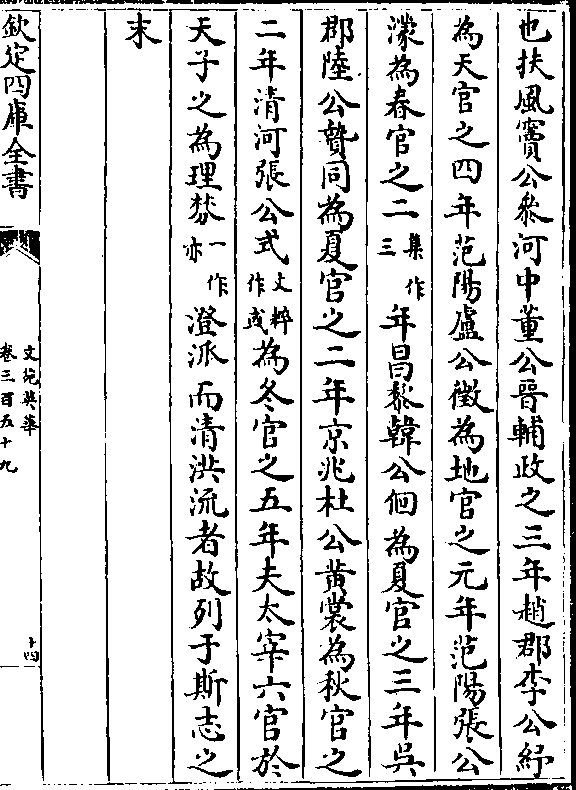 也扶風竇公叅河中董公晉輔政之三年趙郡李公紓
為天官之四年范陽盧公徵為地官之元年范陽張公
濛為春官之二集作三年昌黎韓公佪為夏官之三年吳
郡陸公贄同為夏官之二年京兆杜公黄裳為秋官之
二年清河張公式文粹作或為冬官之五年夫太宰六官於
天子之為理棼一作亦澄派而清洪流者故列于斯志之
末
欽定四庫全書
文苑英華
卷三百五十九
十四